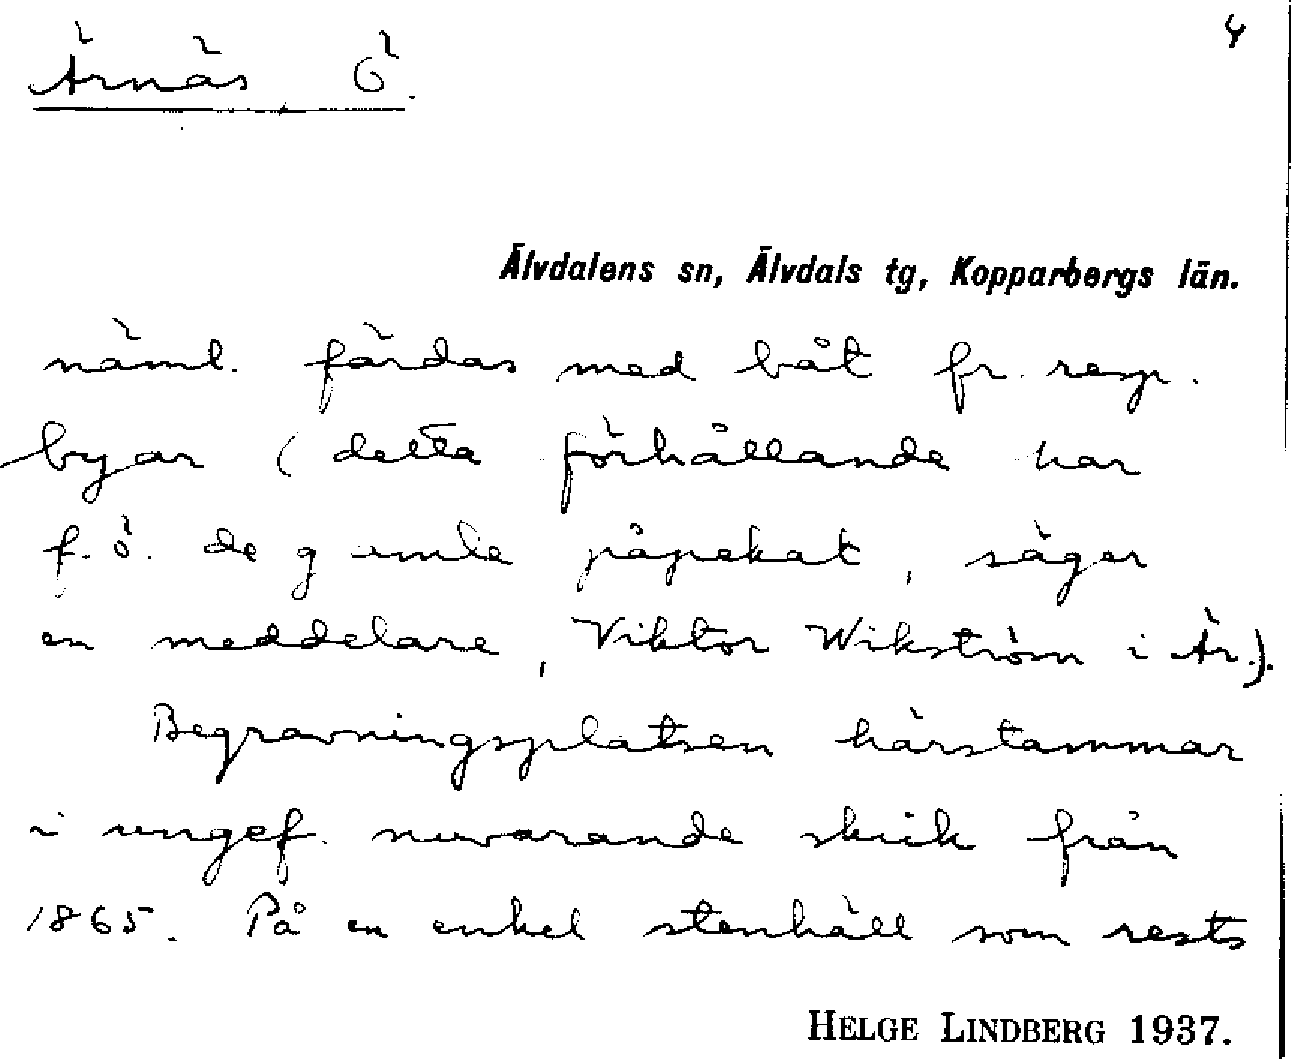 Ärnäs Ö 4
Älvdalens sn, Älvdals tg, Kopparbergs län.
näml. färdas med båt fr. resp.
byar (detta förhållande har
f. ö. de gamle påpekat, säger
en meddelare, Viktor Wikström i Är.).
Begravningsplatsen härstammar
i ungef. nuvarande skick från
1865. På en enkel stenhäll som rests
HELGE LINDBERG 1937.